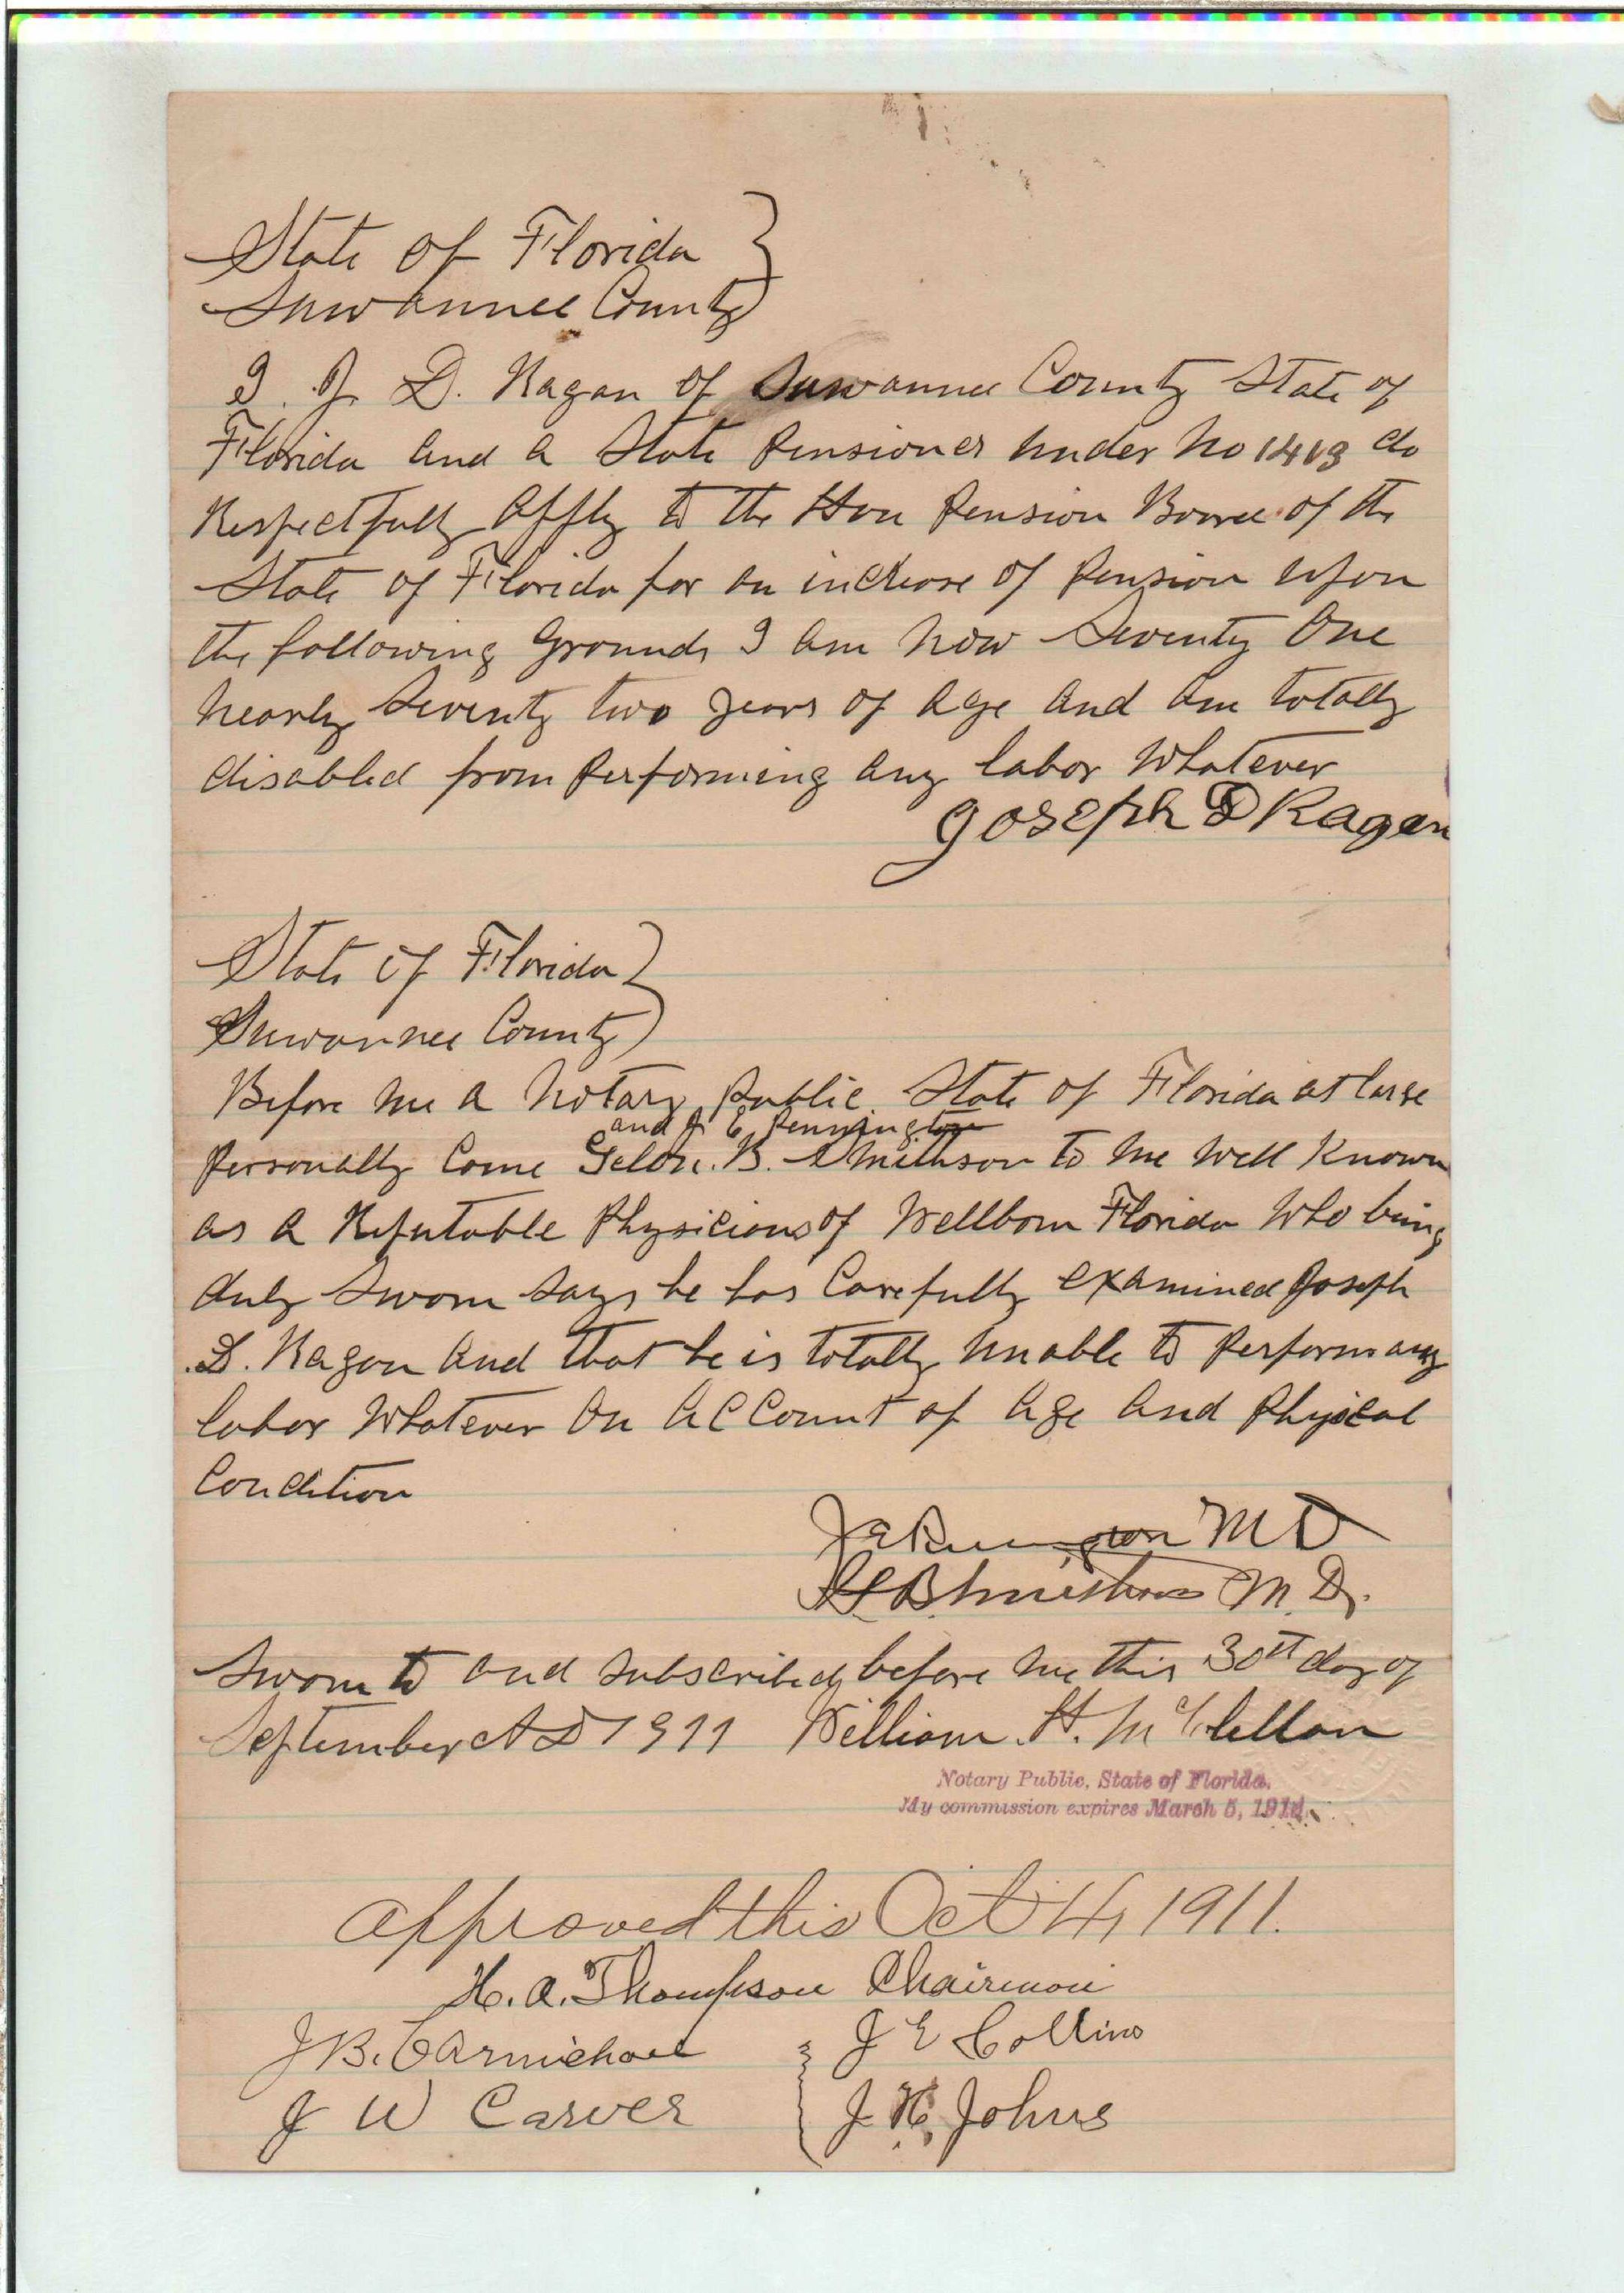 State of Florida }
Suwannee County }
I. J. D. Ragan of Suwannee County State of
Florida and a State Pensioner under No 1413 do
Respectfully apply to the Hon Pension Board of the
State of Florida for an increase of Pension upon
the following Grounds I am now Seventy One
nearly Seventy two years of age and am totally
disabled from Performing any labor Whatever
Joseph D Ragan
State of Florida }
Suwannee County }
Before me a Notary Public State of Florida at large
and J E Pennington
Personally Come B. Smithson to me well Known
as a Reputable Physicians of Wellborn Florida Who being
duly Sworn says he has Carefully examined Joseph
D. Ragan and that he is totally unable to Perform any
labor Whatever on account of age and Physical
Condition
J E Pennington M D
B Smithson M. D.
Sworn to and subscribed before me this 30th day of
September A D 1911 William H. McClellan
Notary Public, State of Florida.
My commission expires March 5,
approved this Oct 4, 1911.
H. A. Thompson Chairman
J B. Carmichael } J E Collins
J W Carver } J H. Johns